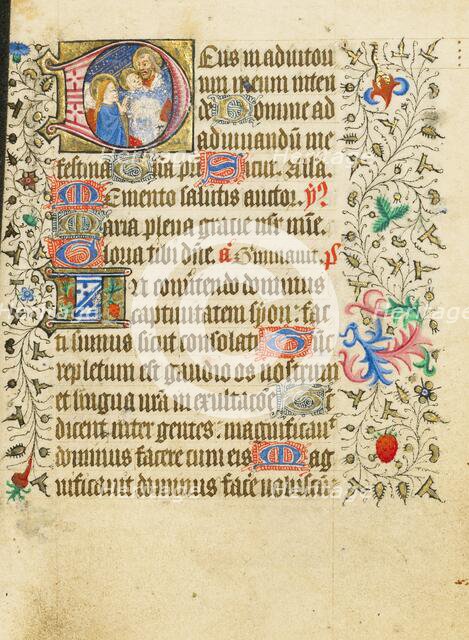 Deus in adiutori
um meum inten
de Domine ad
adiuuandū me
festina Glīa pri Sicut. Alla.
Memento salutis auctor. ꝟ
Maria plena gracie
Gloria tibi dn̄e. a ps
In conuertendo dominus
captiuitatem syon: fac
ti sumus sicut consolati Tūc
repletum est gaudio os nostrum
et lingua nr̄a in exultacōe Tūc
dicent inter gentes: magnificauit
dominus facere cum eis Mag
nificauit dominus face nobiscū
Heritage Images